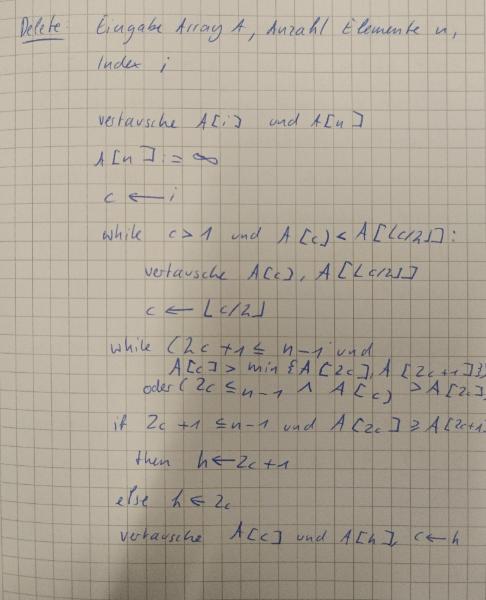 Delete: Eingabe Array A, Anzahl Elemente n,
Index i
vertausche A[i] und A[n]
A[n] := ∞
c ← i
while c > 1 und A[c] < A[⌊c/2⌋]:
vertausche A[c], A[⌊c/2⌋]
c ← ⌊c/2⌋
while (2c+1 ≤ n-1 und
A[c] > min {A[2c], A[2c+1]})
oder (2c ≤ n-1 ∧ A[c] > A[2c]
if 2c+1 ≤ n-1 und A[2c] ≥ A[2c+1
then h ← 2c+1
else h ← 2c
vertausche A[c] und A[h], c ← h